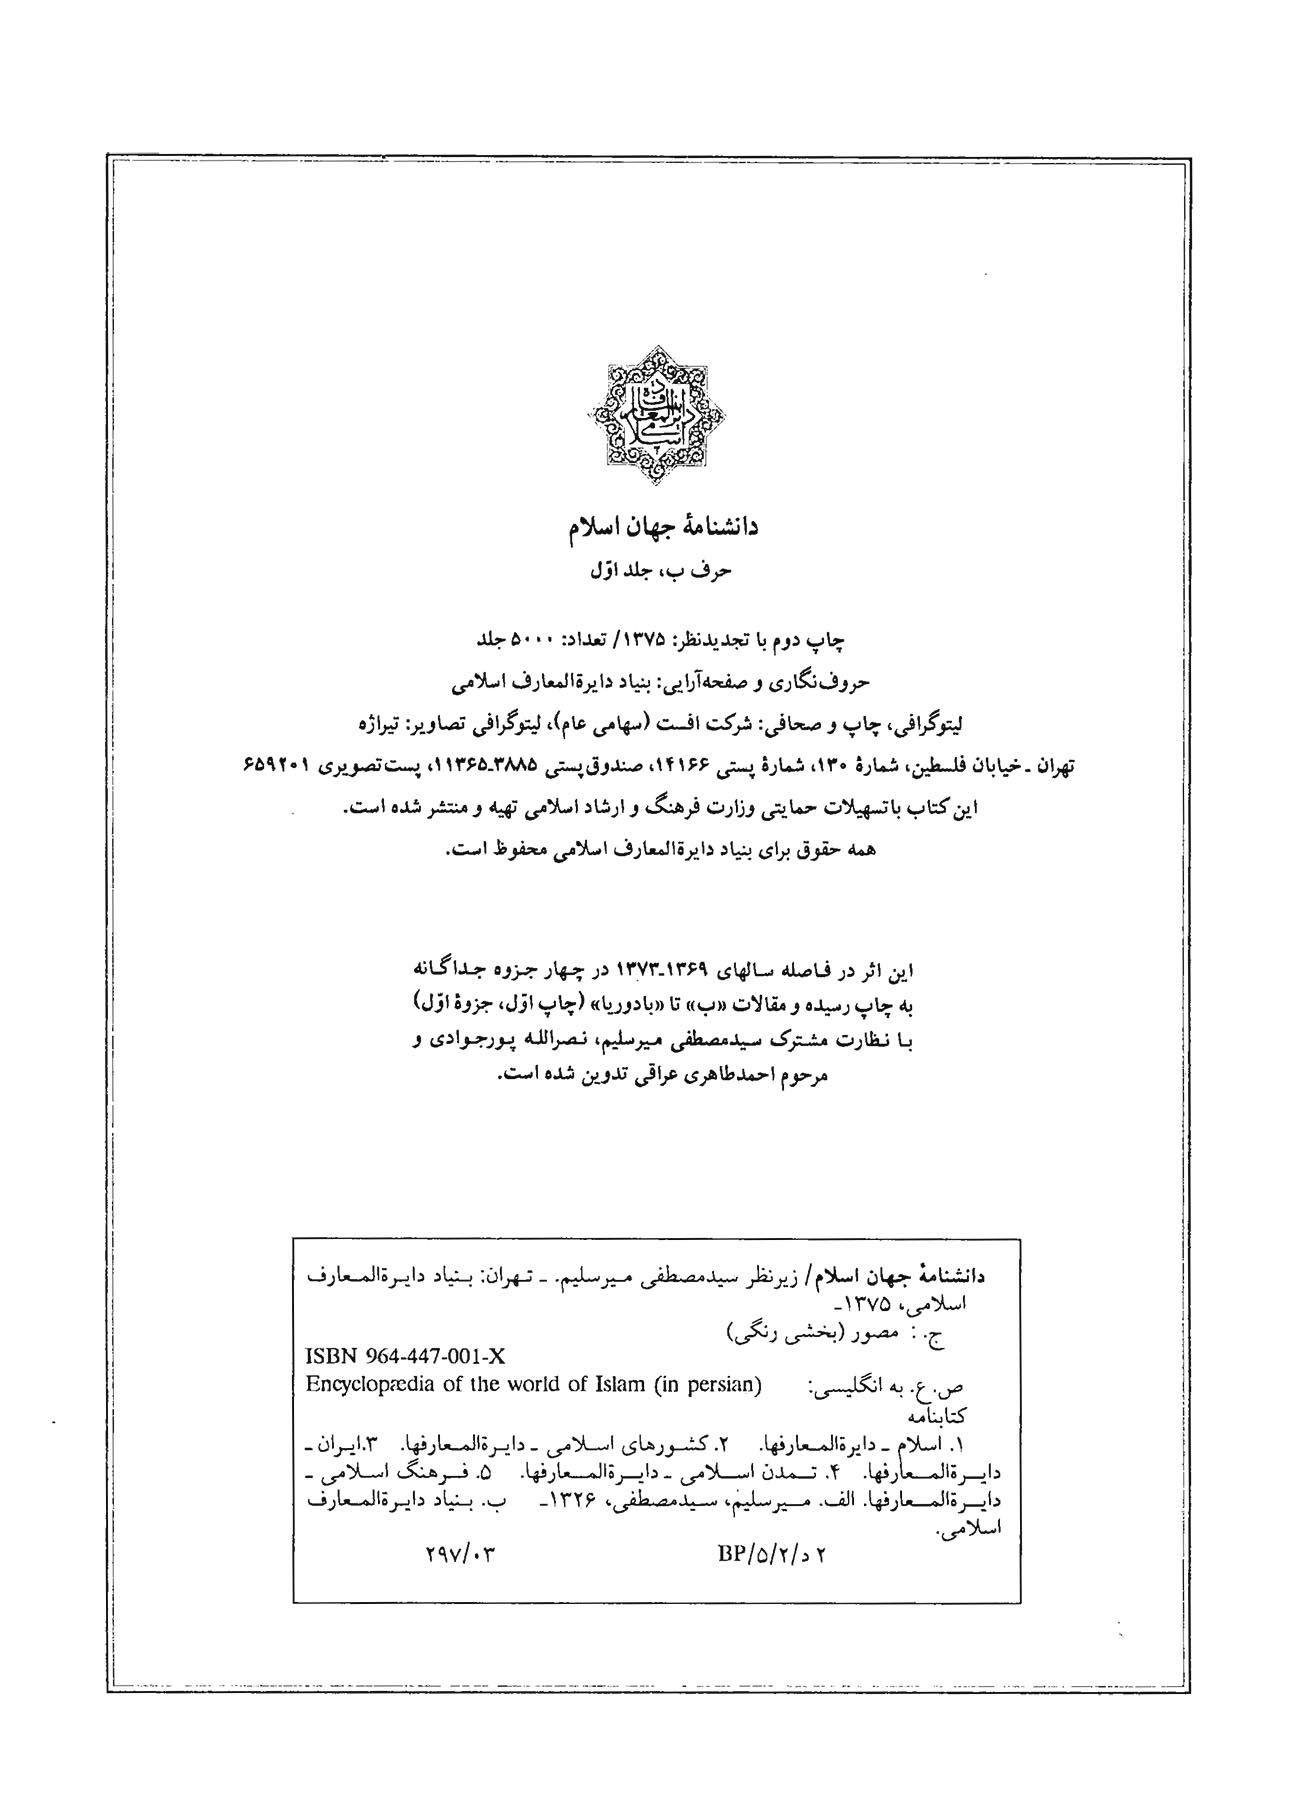 بنیاد
دایرةالمعارف
اسلامی
دانشنامهٔ جهان اسلام
حرف ب، جلد اوّل
چاپ دوم با تجدیدنظر: ۱۳۷۵/ تعداد: ۵۰۰۰ جلد
حروف‌نگاری و صفحه‌آرایی: بنیاد دایرةالمعارف اسلامی
لیتوگرافی، چاپ و صحافی: شرکت افست (سهامی عام)، لیتوگرافی تصاویر: تیراژه
تهران ـ خیابان فلسطین، شمارهٔ ۱۳۰، شمارهٔ پستی ۱۴۱۶۶، صندوق‌پستی ۳۸۸۵ـ۱۱۳۶۵، پست‌تصویری ۶۵۹۲۰۱
این کتاب با تسهیلات حمایتی وزارت فرهنگ و ارشاد اسلامی تهیه و منتشر شده است.
همه حقوق برای بنیاد دایرةالمعارف اسلامی محفوظ است.
این اثر در فاصله سالهای ۱۳۶۹ـ۱۳۷۳ در چهار جزوه جداگانه
به چاپ رسیده و مقالات «ب» تا «بادوریا» (چاپ اوّل، جزوهٔ اوّل)
با نظارت مشترک سیدمصطفی میرسلیم، نصرالله پورجوادی و
مرحوم احمدطاهری عراقی تدوین شده است.
دانشنامهٔ جهان اسلام/ زیرنظر سیدمصطفی میرسلیم. ـ تهران: بنیاد دایرةالمعارف
اسلامی، ۱۳۷۵ـ
ج. : مصور (بخشی رنگی)
ISBN 964-447-001-X
ص. ع. به انگلیسی: Encyclopædia of the world of Islam (in persian)
کتابنامه
۱. اسلام ـ دایرةالمعارفها. ۲. کشورهای اسلامی ـ دایرةالمعارفها. ۳.ایران ـ
دایرةالمعارفها. ۴. تمدن اسلامی ـ دایرةالمعارفها. ۵. فرهنگ اسلامی ـ
دایرةالمعارفها. الف. میرسلیم، سیدمصطفی، ۱۳۲۶ـ ب. بنیاد دایرةالمعارف
اسلامی.
۲ د/۲/۵/BP ۲۹۷/۰۳